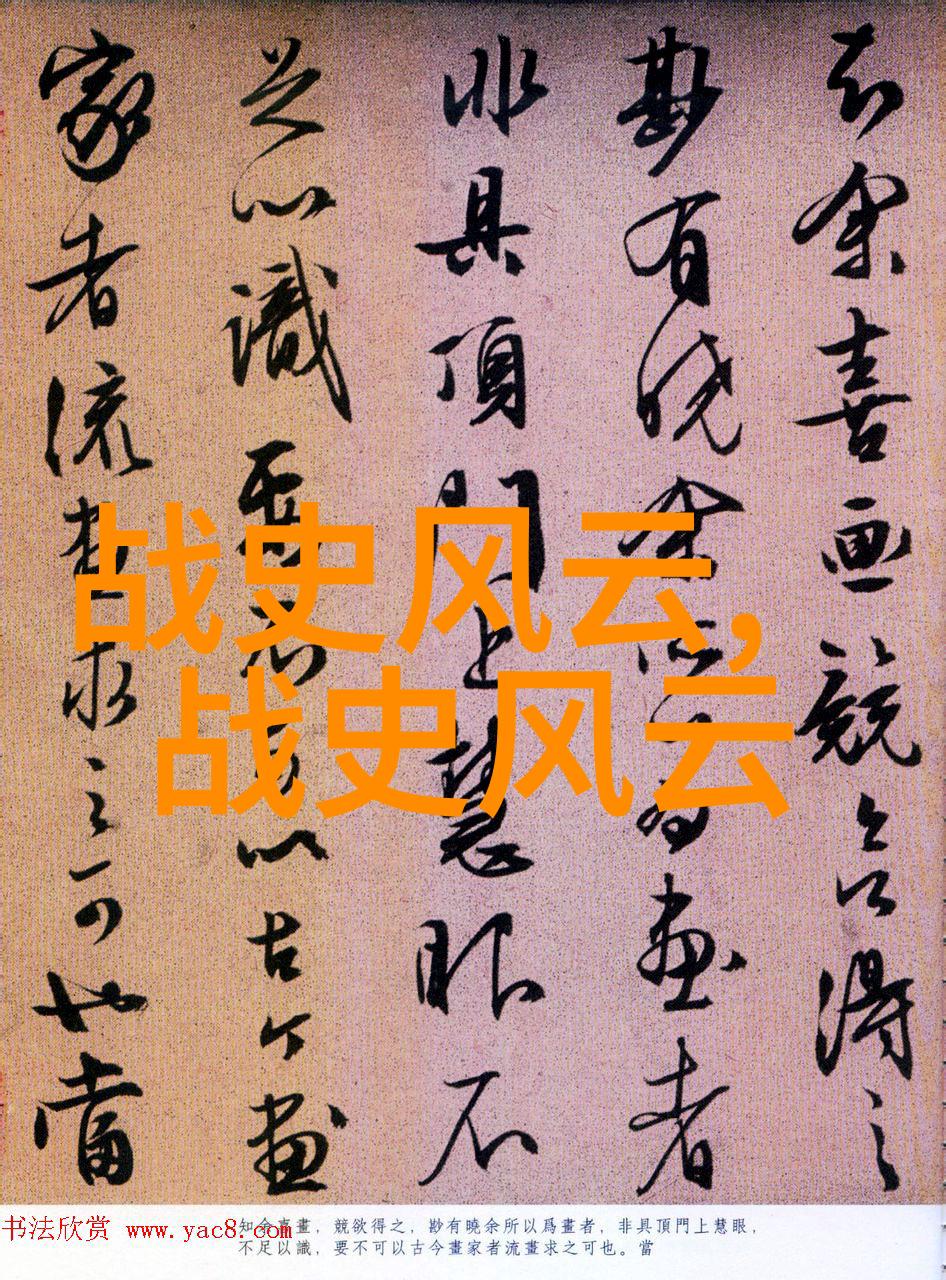 知余喜画競欲得之
尠有曉余所以為畫者
非具頂門上慧眼不
足以識要不可以古今畫
家者流畫求之可也當
战史风云,
战史风云
知余喜畫，競欲得之，尠有曉余所以爲畫者，非具頂門上慧眼，
不足以識，要不可以古今畫家者流畫求之可也。當
书法欣赏 www.yac8.com